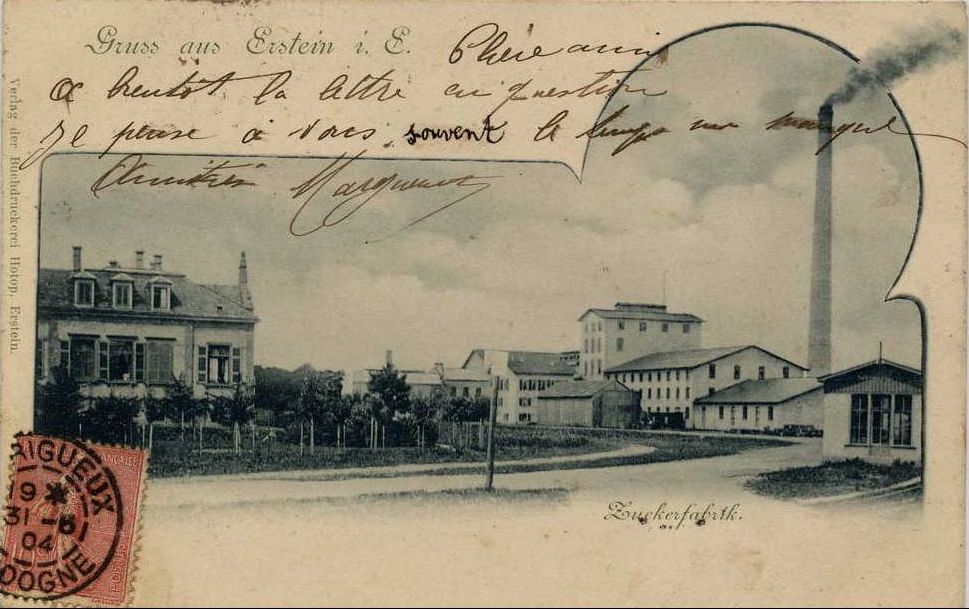 Gruss aus Erstein i. E.
Chère amie
A bientôt la lettre en question
Je pense à vous souvent le temps me manque
Amitiés Marguerite
Verlag der Buchdruckerei Hotop, Erstein.
Zuckerfabrik.
RIGUEUX
9
31 -
04
DOGNE
ANÇAISE
POSTES